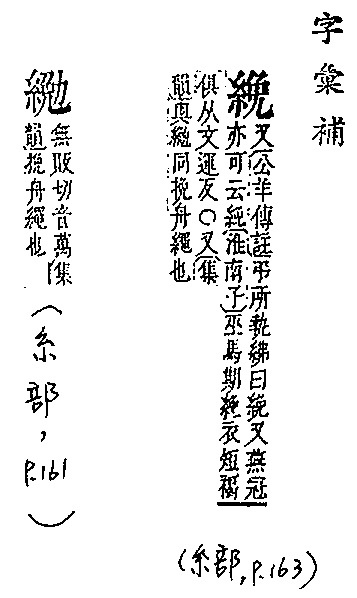 字彙補
絻 又公羊傳註弔所執紼曰絻又燕冠
亦可云絻淮南子巫馬期絻衣短褐
俱从文運反○又集
韻與同挽舟繩也
(糸部,P.163)
無販切音萬集
韻挽舟繩也
(糸部,P.161)